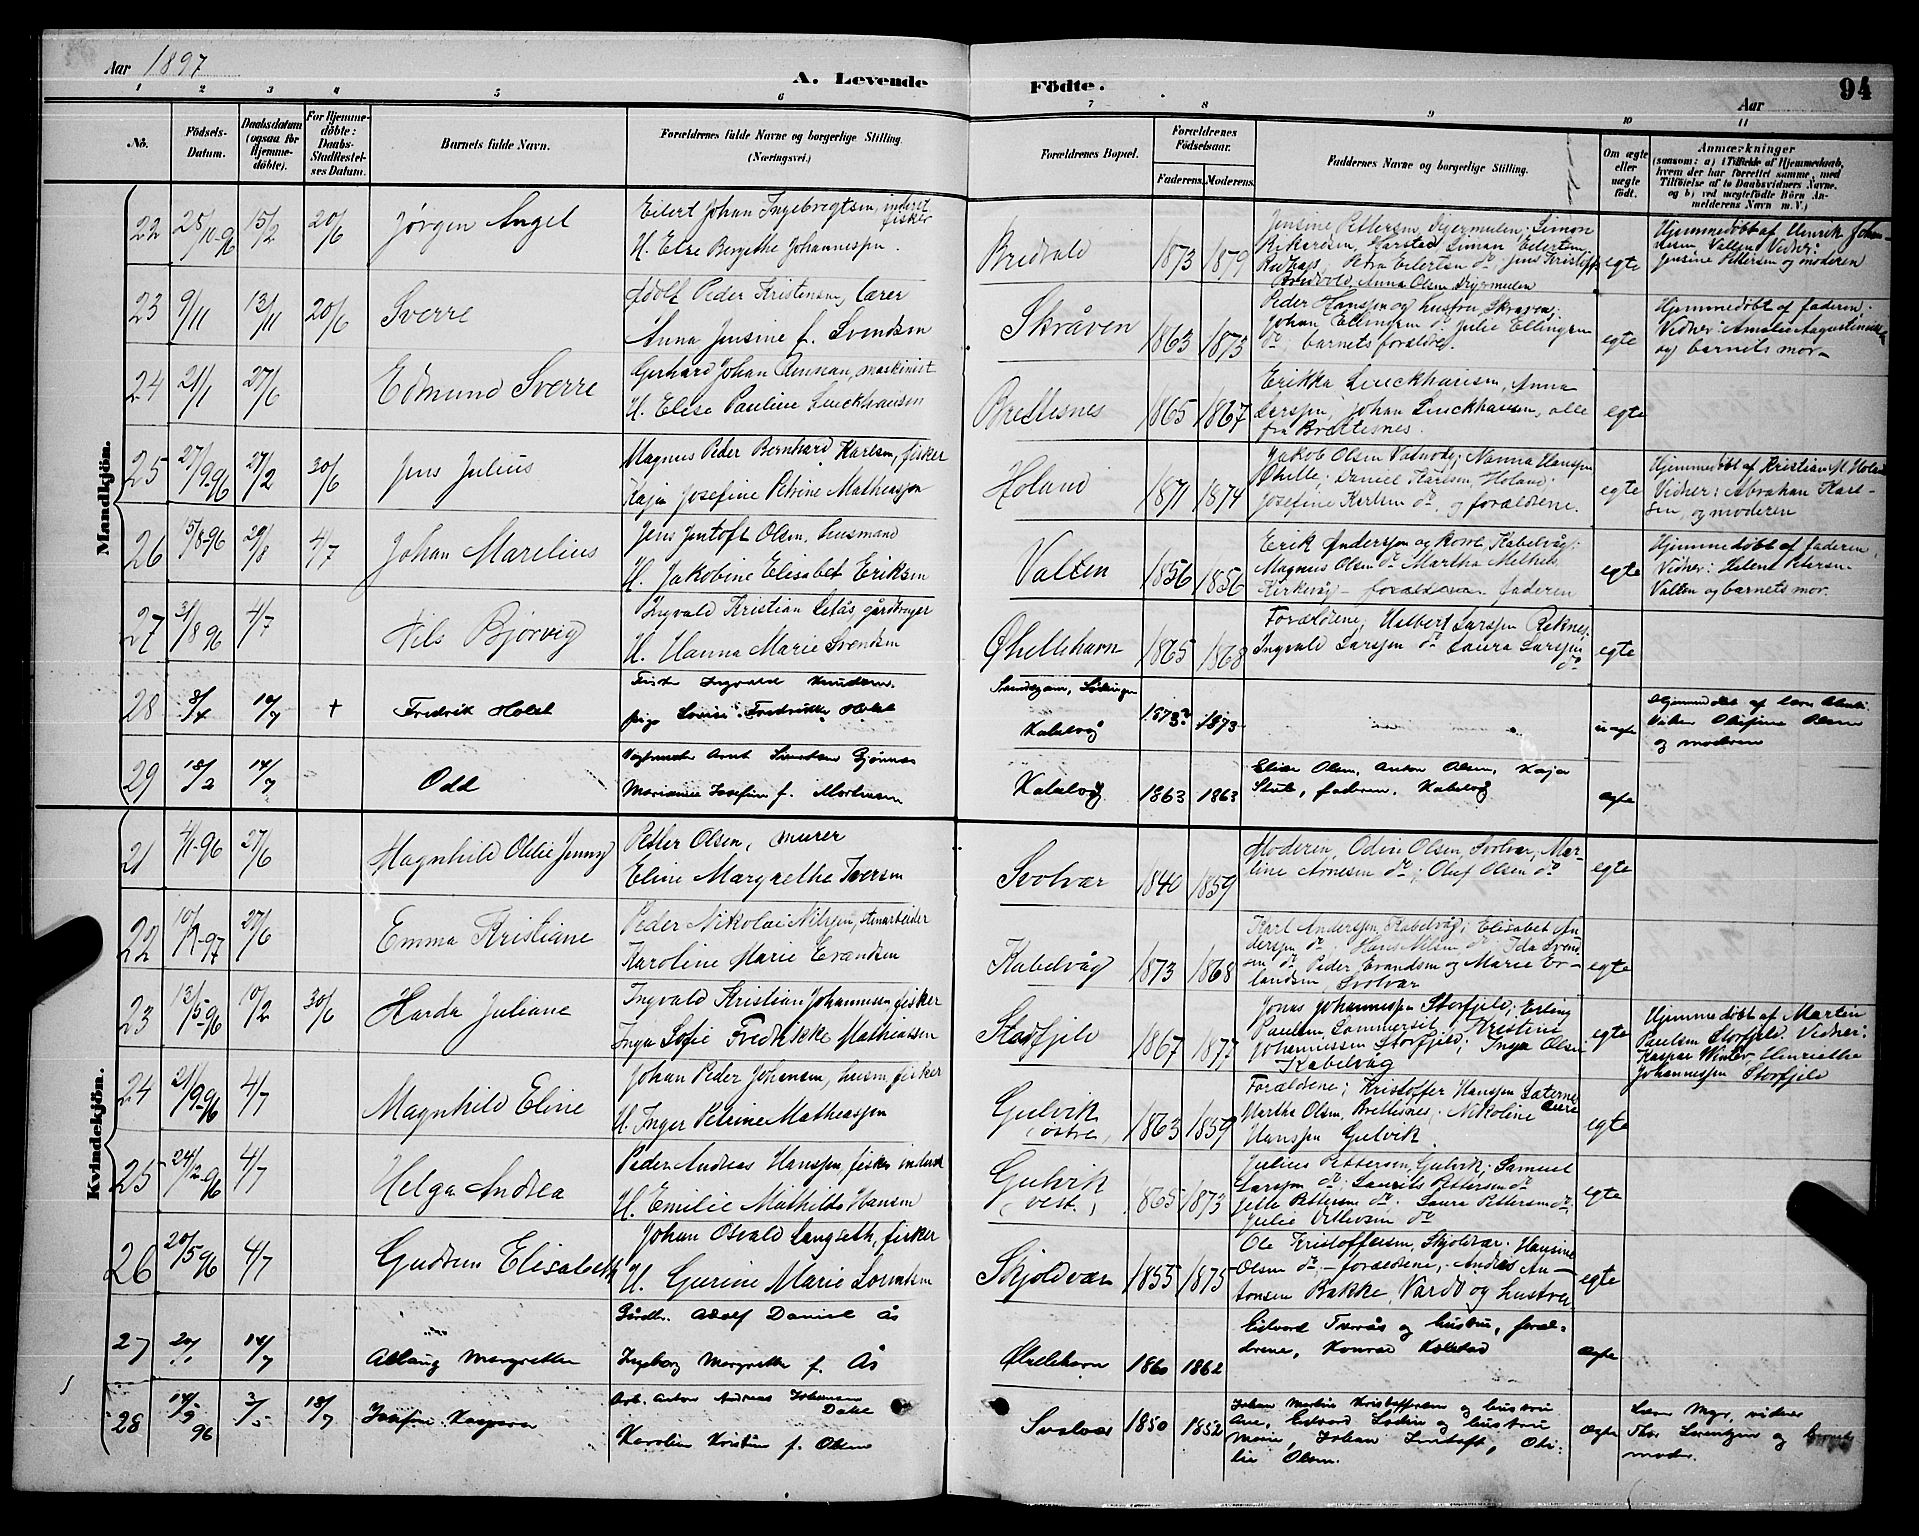 Aar 1897
A. Levende
Födte.
94
Aar
1 2 3 4 5 6 7 8 9 10 11
No.
Födsels-Datum.
Daabsdatum (ogsaa for Hjemmedöbte).
For Hjemmedöbte: Daabs-Stadfæstelses Datum.
Barnets fulde Navn.
Forældrenes fulde Navne og borgerlige Stilling.
(Næringsvei.)
Forældrenes Bopæl.
Forældrenes Födselsaar.
Faderens. Moderens.
Faddernes Navne og borgerlige Stilling.
Om ægte eller uægte födt.
Anmærkninger
(saasom: a) i Tilfælde af Hjemmedaab, hvem der har forrettet samme, med Tilföielse af to Daabsvidners Navne, og b) ved uægtefödte Börn Anmelderens Navn m. V.)
Mandkjön.
22 25/10-96 15/2 20/6 Jørgen Angel
Eilert Johan Ingebregtsen, inderst fisker
H. Else Bergithe Johannessen.
Bredvold 1873 1879
Jensine Pettersen Digermulen, Simon
Rikardsen, Harstad Simon Eilertsen
Petra Eilertsen do. Jens Kristoff
Bredvold, Anna Olsen Digermulen
egte
Hjemmedøbt af Henrik Johansen Vallen Vidner:
Jensine Pettersen og moderen
23 9/11 13/11 20/6 Sverre
Adolf Peder Kristensen, lærer
Anna Jensine f. Svendsen
Skråven 1863 1873
Peder Hanssen og hustru Skraaven;
Johan Ellingsen do. Julie Ellingsen
do; barnets forældre.
egte
Hjemmedøbt af faderen.
Vidner: Amalie Augustinusen
og barnets mor-
24 21/1 27/6 Edmund Sverre
Gerhard Johan Rennan, maskinist
H. Elise Pauline Luckhausen
Brettesnes 1865 1867
Erikka Luckhausen, Anna
Larssen, Johan Luckhausen, alle
fra Brettesnes.
egte
25 27/9 96 27/2 30/6 Jens Julius
Magnus Peder Bernhard Karlsen, fisker
Kaja Josefine Petrine Mathiassen
Holand 1871 1874
Jakob Olsen Vatnode; Nanna Hanssen
Ørhelle; Daniel Karlsen, Holand;
Josefine Karlsen do. og forældrene.
egte
Hjemmedøbt af Kristian M. Holand
Vidner: Abraham Karlsen, og moderen
26 15/8-96 29/8 4/7 Johan Marelius
Jens Jentoft Olsen, husmand
H. Jakobine Elisabet Eriksen
Vallen 1856 1856
Erik Anderssen og kone Kabelvåg;
Magnus Olsen do Martha
Kirkevåg - faderen
egte
Hjemmedøbt af faderen,
Vidner: Helene Petersen
Vallen og barnets mor.
27 3/8 96 4/7 Nils Bjørvig
Ingvald Kristian Letås, gårdbruger
H. Hanna Marie Svendsen
Ørhellehavn 1865 1868
Forældrene, Halbert Larssen Reknes,
Ingvald Larssen do Laura Larssen
do
egte
28 8/4 14/7 + Fredrik Holst
Fisker Ingvald Knudsen.
pige Lovise Fredrikke Holst
Kabelvåg 1873? 1873
uægte
Hjemmedøbt af
Vidner Olefine Olsen
og moderen
29 18/2 14/7 Odd
Arnt Sivertsen Gjønnes
Marianne Josefine f. Mortensen
Kabelvåg 1863 1863
Elise Olsen, Anton Olsen, Kaja
faderen, Kabelvåg
ægte
Kvindekjön.
21 4/1-96 27/6 Magnhild Otelie Jenny
Petter Olsen, murer
Eline Margrethe Iversen
Svolvær 1840 1859
Moderen, Odin Olsen, Svolvær, Marline Arnesen do; Oluf Olsen do
egte
22 10/1-97 27/6 Emma Kristiane
Peder Nikolai Nilssen, stenarbeider
Karoline Marie Evandsen
Kabelvåg 1873 1868
Karl Anderssen, Kabelvåg; Elisabet Anderssen do. Hans Nilsen do Ida Svendsen do Peder Evandsen og Marie Erlandsen, Svolvær
egte
23 13/5-96 10/2 30/6 Harda Juliane
Ingvald Kristian Johannesen fisker
Inga Sofie Fredrikke Mathiassen
Storfjeld 1867 1877
Jonas Johannessen Storfjeld; Erling
Paulsen Sommerset. Kristine
Johannessen Storfjeld; Inga Olsen
Kabelvåg
egte
Hjemmedøbt af Martin
Paulsen Storfjeld. Vidner:
Kaspar Winter, Henriette
Johannessen Storfjeld
24 21/9-96 4/7 Magnhild Eline
Johan Peder Johansen, husm. fisker
H. Inger Petrine Mathiassen
Gulvik (østre) 1863 1859
Forældrene; Kristoffer Hanssen Sæterne
Martha Olsen, Brettesnes; Nikoline
Hanssen Gulvik.
egte
25 24/2-96 4/7 Helga Andrea
Peder Andreas Hanssen, fisker inderst
H. Emilie Mathilde Hansen
Gulvik (vest.) 1865 1873
Julius Pettersen, Gulvik; Samuel
Larssen do; Laurits Pettersen do
Jette Pettersen do; Laura Pettersen do;
Julie do
egte
26 20/5 96 4/7 Gudrun Elisabeth
Johan Osvald Langseth, fisker
H. Gurine Marie Lorentsen
Skjoldvær 1855 1875
Ole Kristoffersen, Skjoldvær. Hansine
Olsen do, - forældrene, Andreas Antonsen Bakke, Vardø og hustru
egte
27 20/11 14/7 Aslaug Margrethe
Gårdbr. Adolf Daniel Ås
Ingeborg Margrethe f. Ås
Ørhellehavn 1860 1862
Edvard og hustru, forældrene, Konrad Kolstad
ægte
28 14/9 96 3/5 18/7 Josefine Kaspara
Arb. Anton Andreas Johansen
Dahl
Karoline Kristine f. Olsen
Svolvær 1850 1852
Johan Martin Kristoffersen og hustru
Ane, Edvard og hustru
Marie, Johan Jentoft, Otilie Olsen.
ægte
Thor Lorentzen og barnets
moder.